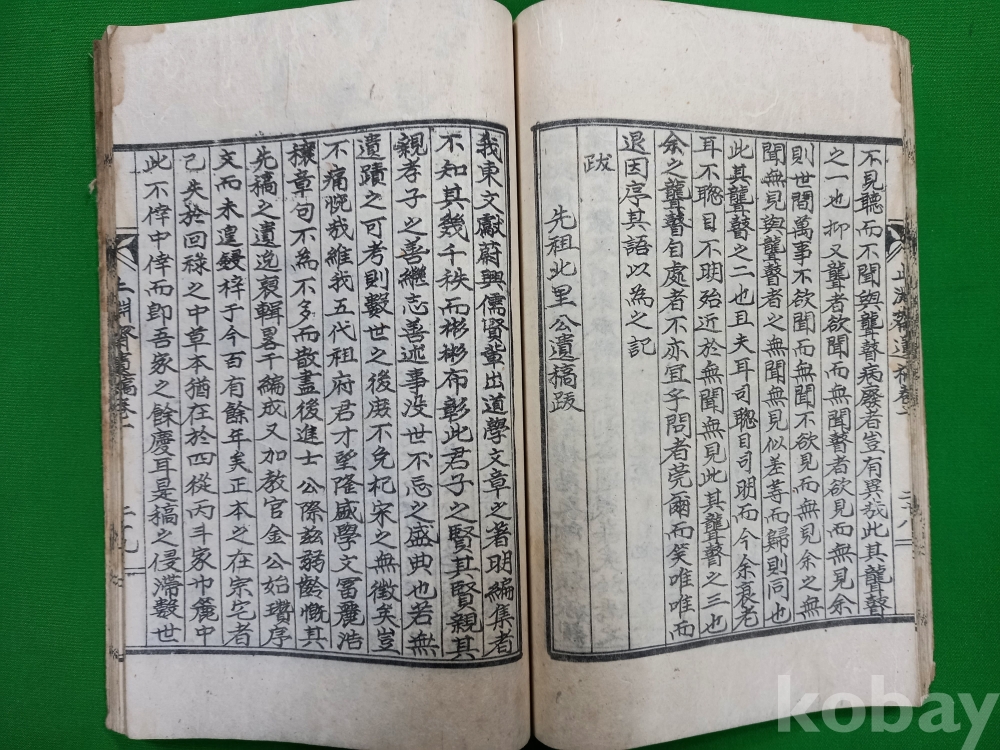 不見聽而不聞與聾瞽病廢者豈有異哉此其聾瞽
之一也抑又聾者欲聞而無聞瞽者欲見而無見余
則世間萬事不欲聞而無聞不欲見而無見余之無
聞無見與聾瞽者之無聞無見似差等而歸則同也
此其聾瞽之二也且夫耳司聰目司明而今余衰老
耳不聰目不明殆近於無聞無見此其聾瞽之三也
余之聾瞽自處者不亦宜乎問者莞爾而笑唯唯而
退因序其語以為之記
跋
先祖北里公遺稿跋
我東文獻蔚興儒賢輩出道學文章之著明編集者
不知其幾千秩而彬彬布彰此君子之賢其賢親其
親孝子之善繼志善述事没世不忘之盛典也若無
遺蹟之可考則數世之後淺不免杞宋之無徵矣豈
不痛恨哉維我五代祖府君才望隆威學文富麗浩
穰章句不為不多而散盡後進士公際玆弱齡慨其
先稿之遺逸裒輯畧干編成又加教官金公始瓚序
文而未遑鋟梓于今百有餘年矣正本之在宗宅者
已失於回祿之中草本猶在於四從丙斗家巾簏中
此不倖中倖而即吾家之餘慶耳是稿之侵滯數世
遺稿卷
二十八
二十九
kobay